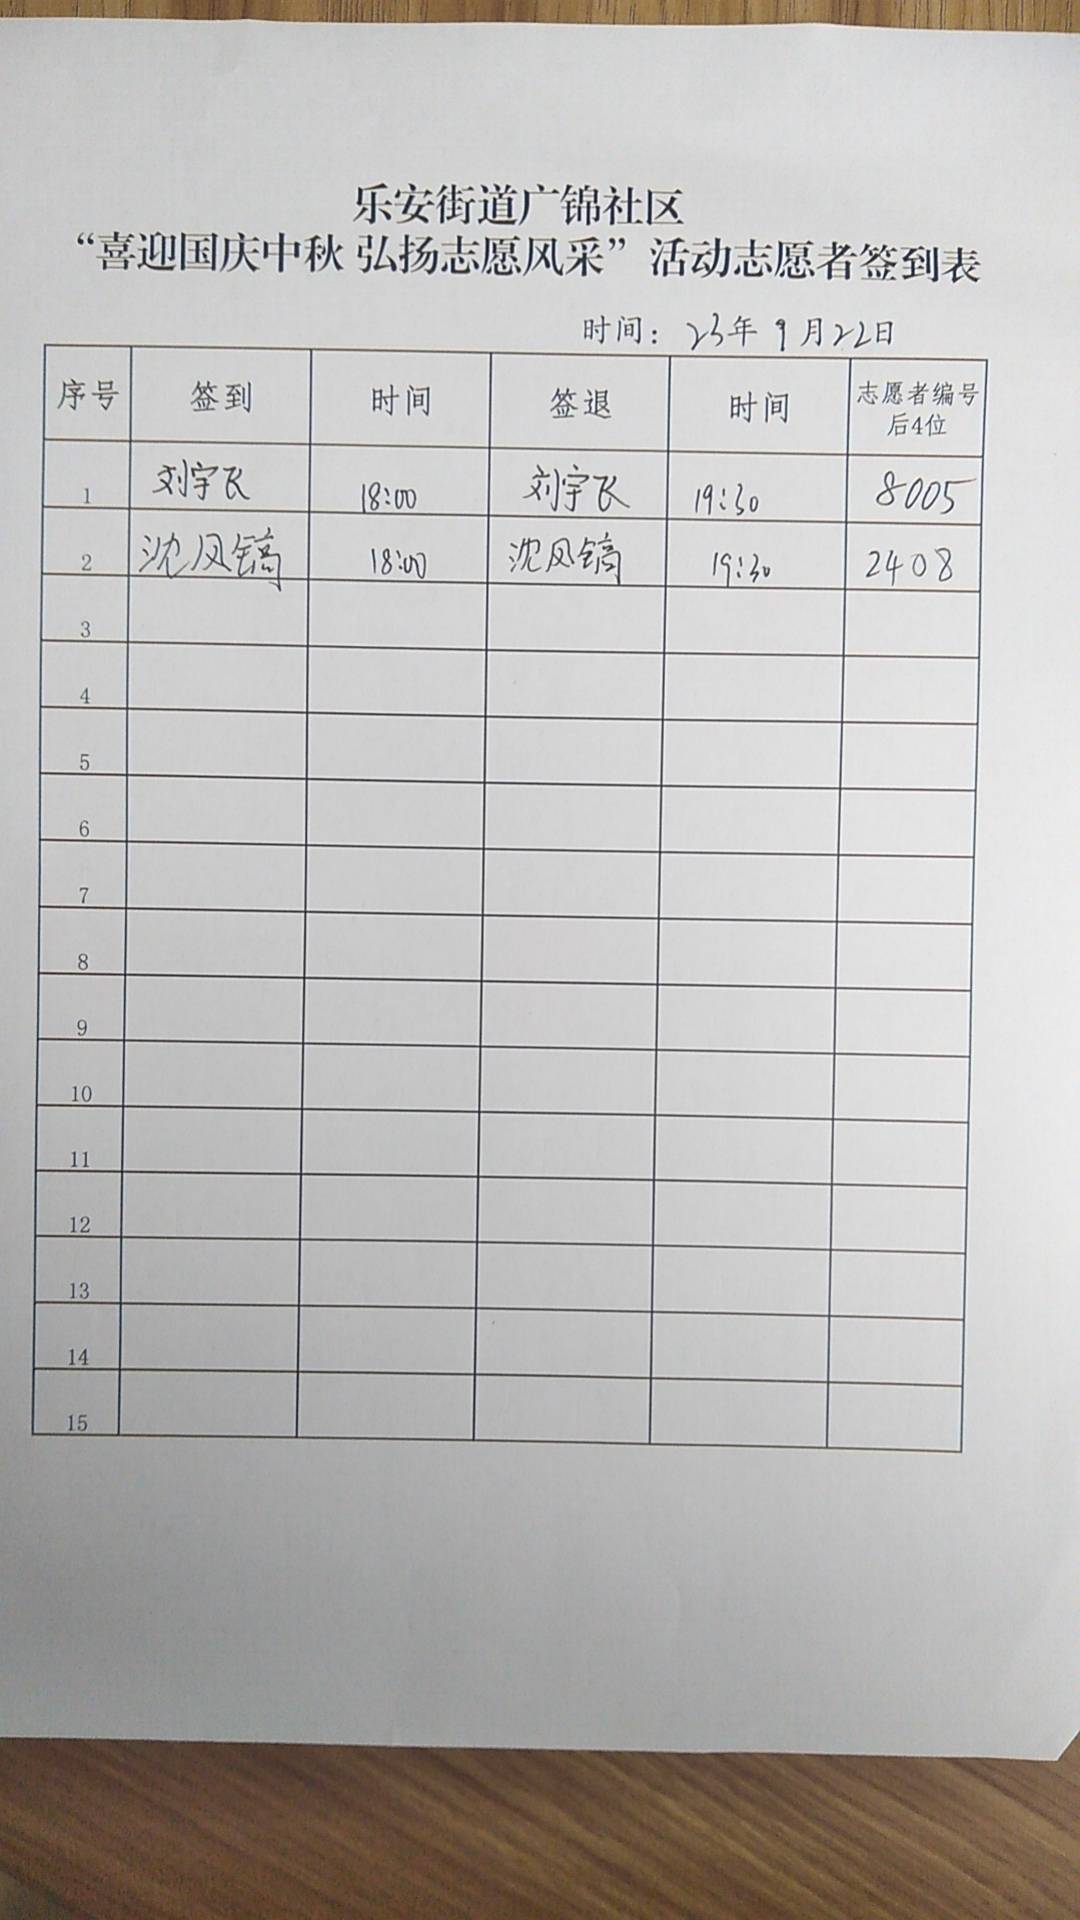 乐安街道广锦社区
“喜迎国庆中秋 弘扬志愿风采”活动志愿者签到表
时间：23年 9月22日
序号 签到 时间 签退 时间 志愿者编号后4位
1 刘宇飞 18:00 刘宇飞 19:30 8005
2 沈风镐 18:00 沈风镐 19:30 2408
3
4
5
6
7
8
9
10
11
12
13
14
15